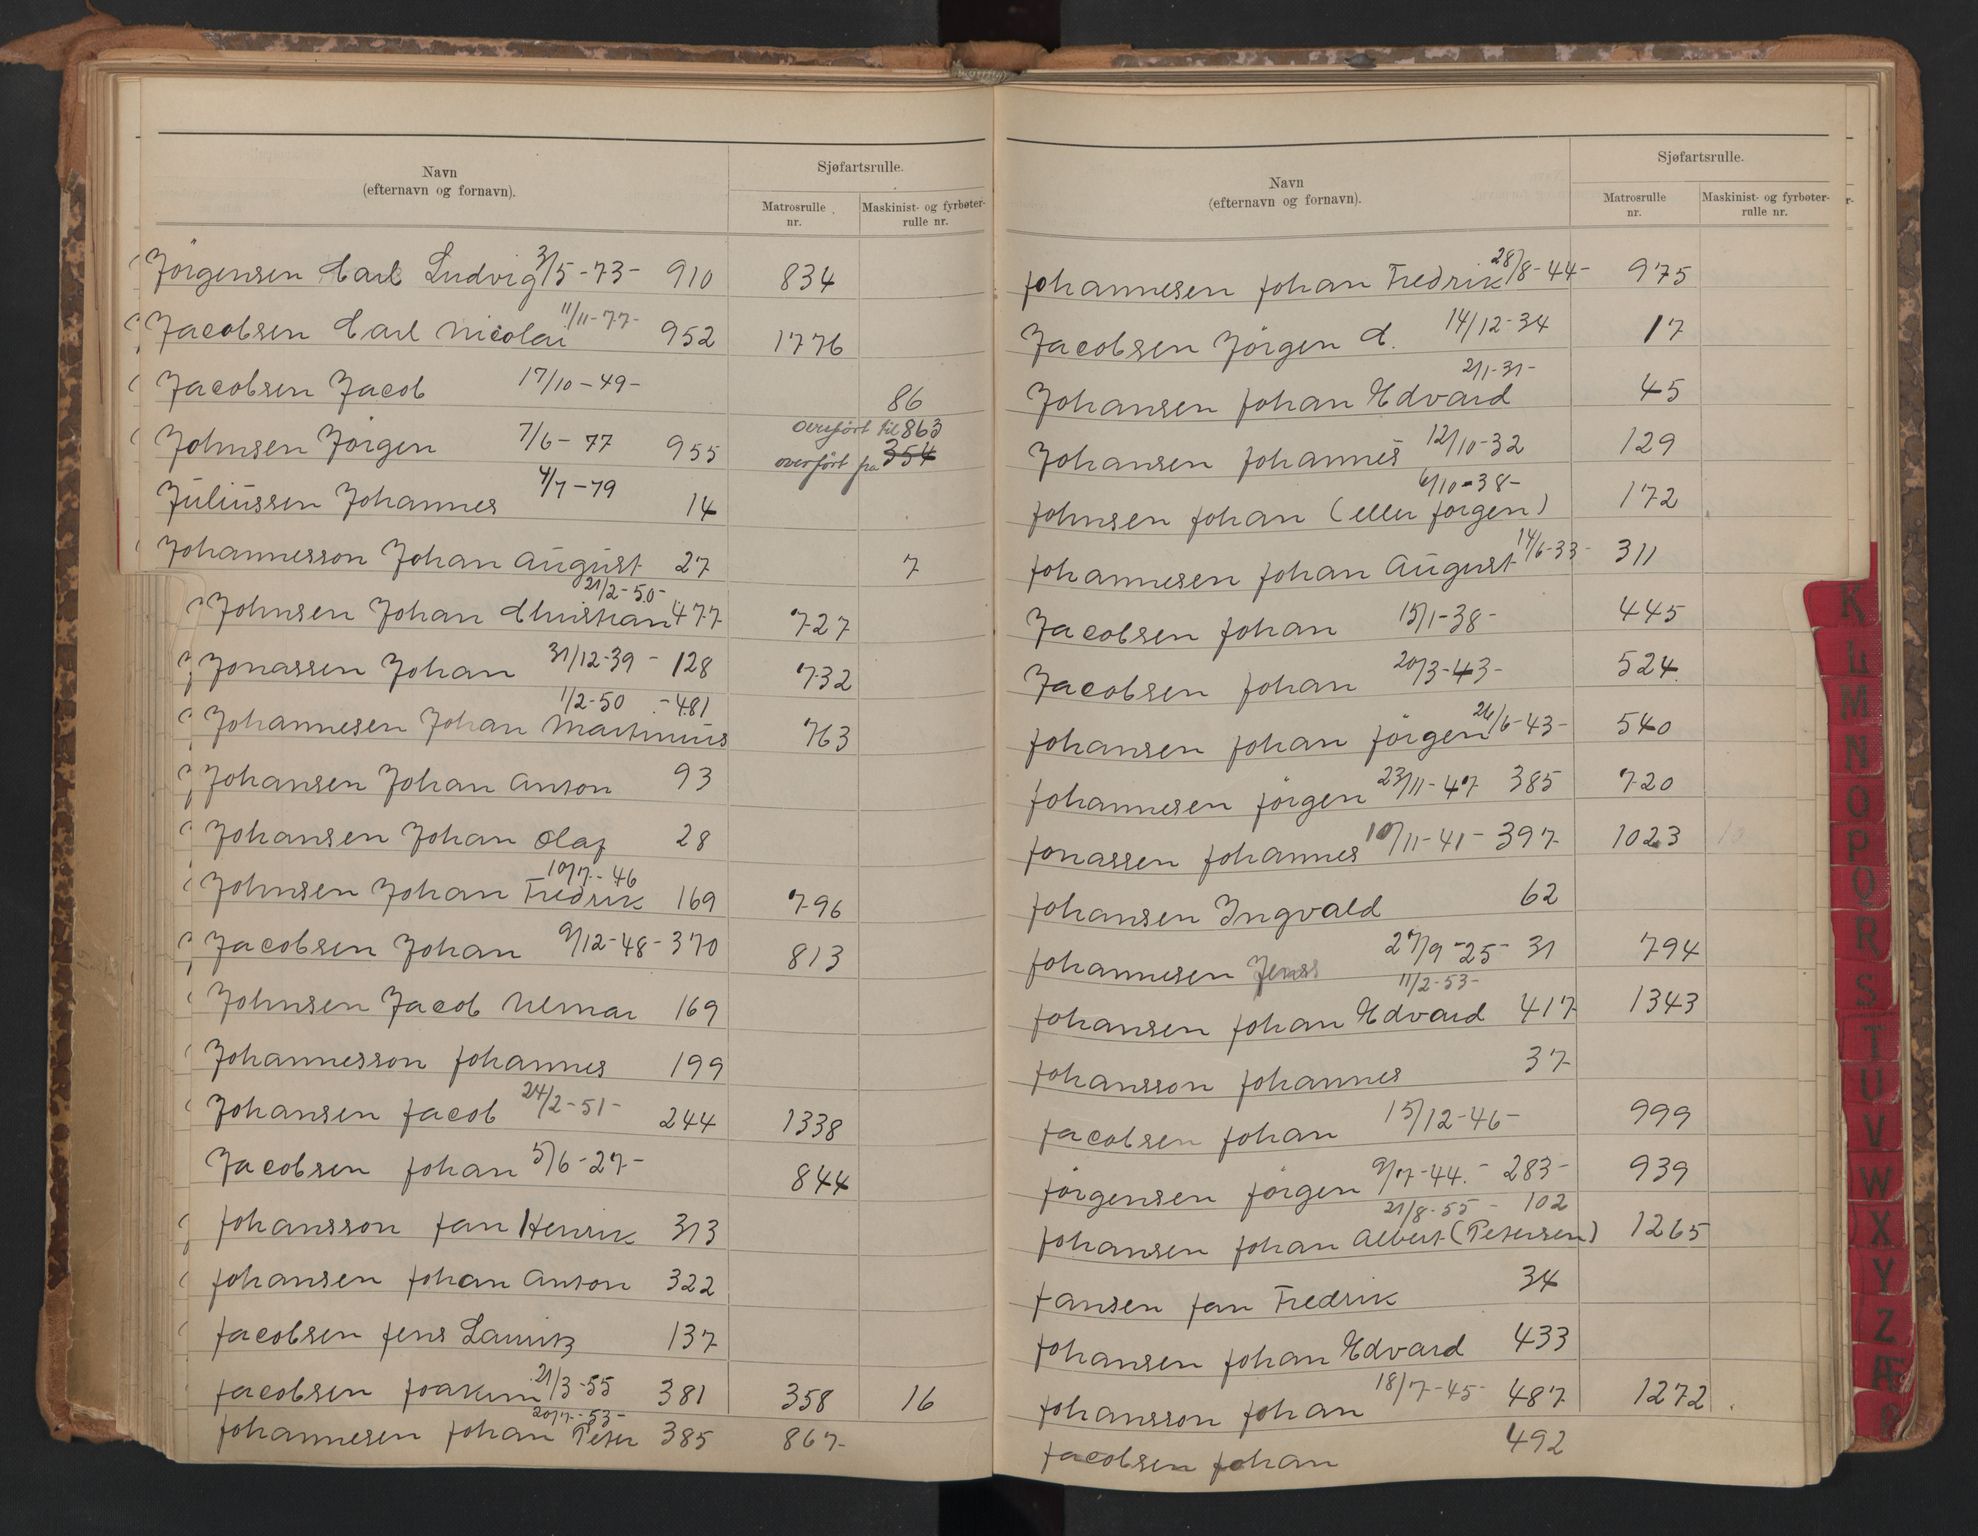 Navn
(efternavn og fornavn).
Sjøfartsrulle.
Matrosrulle nr.
Maskinist- og fyrbøter-rulle nr.
Jørgensen Carl Ludvig 3/5-73- 910 834
Jacobsen Carl Nicolai 11/11-77- 952 1776
Jacobsen Jacob 17/10-49- 86
Johnsen Jørgen 7/6-77 955 overført til 863
overført fra 354
Juliussen Johannes 4/7-79 14
Johannesson Johan August 27 7
Johnsen Johan Christian 21/2-50- 477 727
Jonassen Johan 31/12-39- 128 732
Johannesen Johan Martinius 1/2-50 -481 763
Johansen Johan Anton 93
Johansen Johan Olaf 28
Johnsen Johan Fredrik 10/7-46 169 796
Jacobsen Johan 9/12-48- 370 813
Johnsen Jacob 169
Johannesson Johannes 199
Johansen Jacob 24/2-51- 244 1338
Jacobsen Johan 5/6-27- 844
Johansson Jan Henrik 313
Johansen Johan Anton 322
Jacobsen Jens Lauritz 137
Jacobsen Joakim 21/3-55 381 358 16
Johannesen Johan Peter 20/7-53- 385 867
Navn
(efternavn og fornavn).
Sjøfartsrulle.
Matrosrulle nr.
Maskinist- og fyrbøter-rulle nr.
Johannesen Johan Fredrik 28/8-44- 975
Jacobsen Jørgen C. 14/12-34 17
Johansen Johan Edvard 2/1-31- 45
Johansen Johannes 12/10-32 129
Johnsen Johan (eller Jørgen) 6/10-38- 172
Johannesen Johan August 14/6-33- 311
Jacobsen Johan 15/1-38- 445
Jacobsen Johan 20/3-43- 524
Johansen Johan Jørgen 26/6-43- 540
Johannesen Jørgen 23/11-47 385 720
Jonassen Johannes 10/11-41- 397 1023
Johansen Ingvald 62
Johannesen Jens 27/9-25- 31 794
Johansen Johan Edvard 11/2-53- 417 1343
Johansson Johannes 37
Jacobsen Johan 15/12-46- 999
Jørgensen Jørgen 9/7-44.- 283- 939
Johansen Johan Albert (Petersen) 21/8-55- 102 1265
Jansen Jan Fredrik 34
Johansen Johan Edvard 433
Johansson Johan 18/7-45- 487 1272
Jacobsen Johan 492
K
L
M
N
O
P
Q
R
S
T
U
V
W
X
Y
Z
Æ
Ø